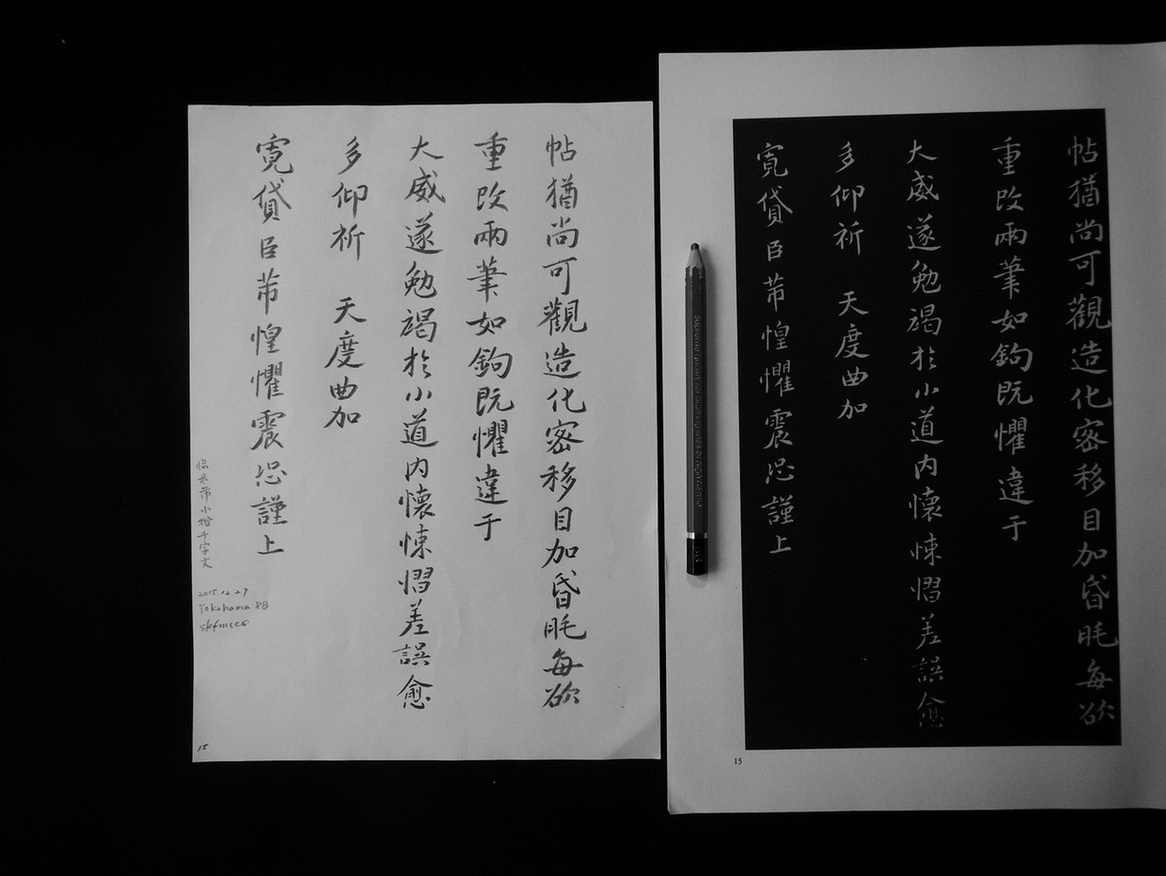 帖猶尚可觀造化密移目加昏眊每欲
重改兩筆如鉤既懼違于
大威遂勉竭於小道内懷悚慴差誤愈
多仰祈　天度曲加
寬貸臣芾惶懼震恐謹上
临米芾小楷千字文
2015.12.27
Yokohama
15
帖猶尚可觀造化密移目加昏眊每欲
重改兩筆如鉤既懼違于
大威遂勉竭於小道内懷悚慴差誤愈
多仰祈　天度曲加
寬貸臣芾惶懼震恐謹上
15